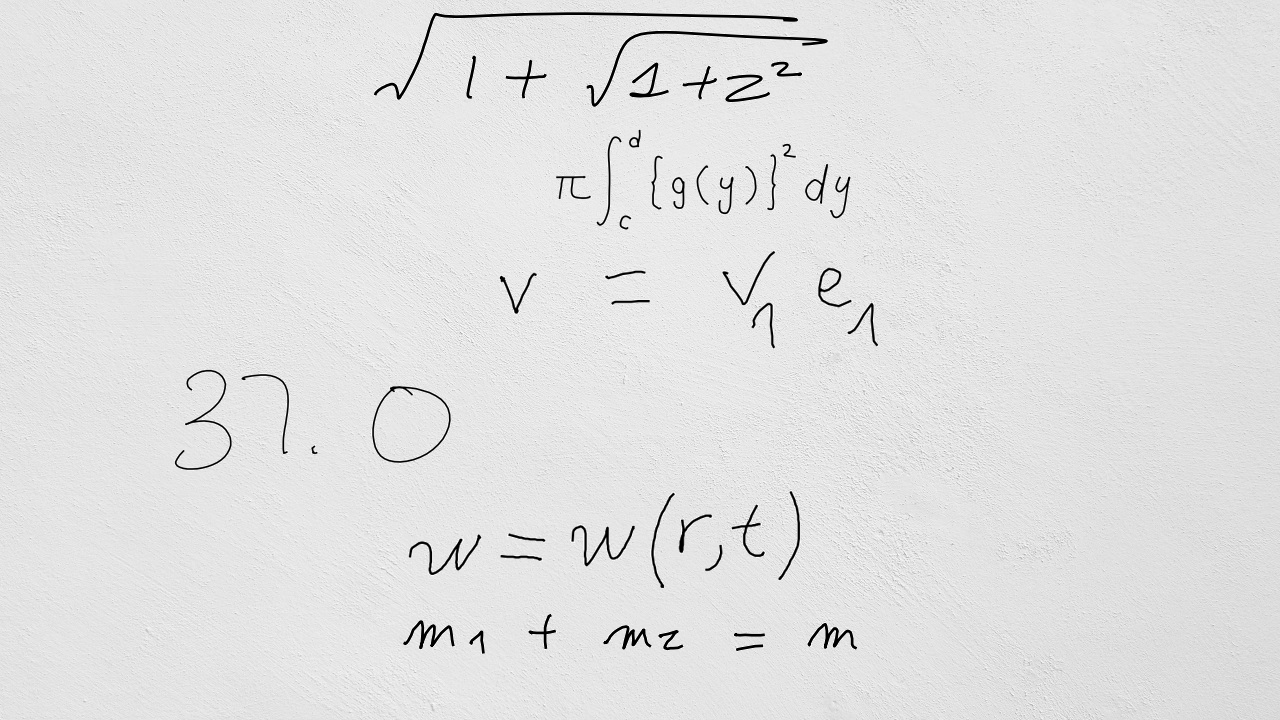 √(1 + √(1+z²))
π∫_c^d {g(y)}² dy
v = v₁ e₁
37.0
w = w(r,t)
m₁ + m₂ = m